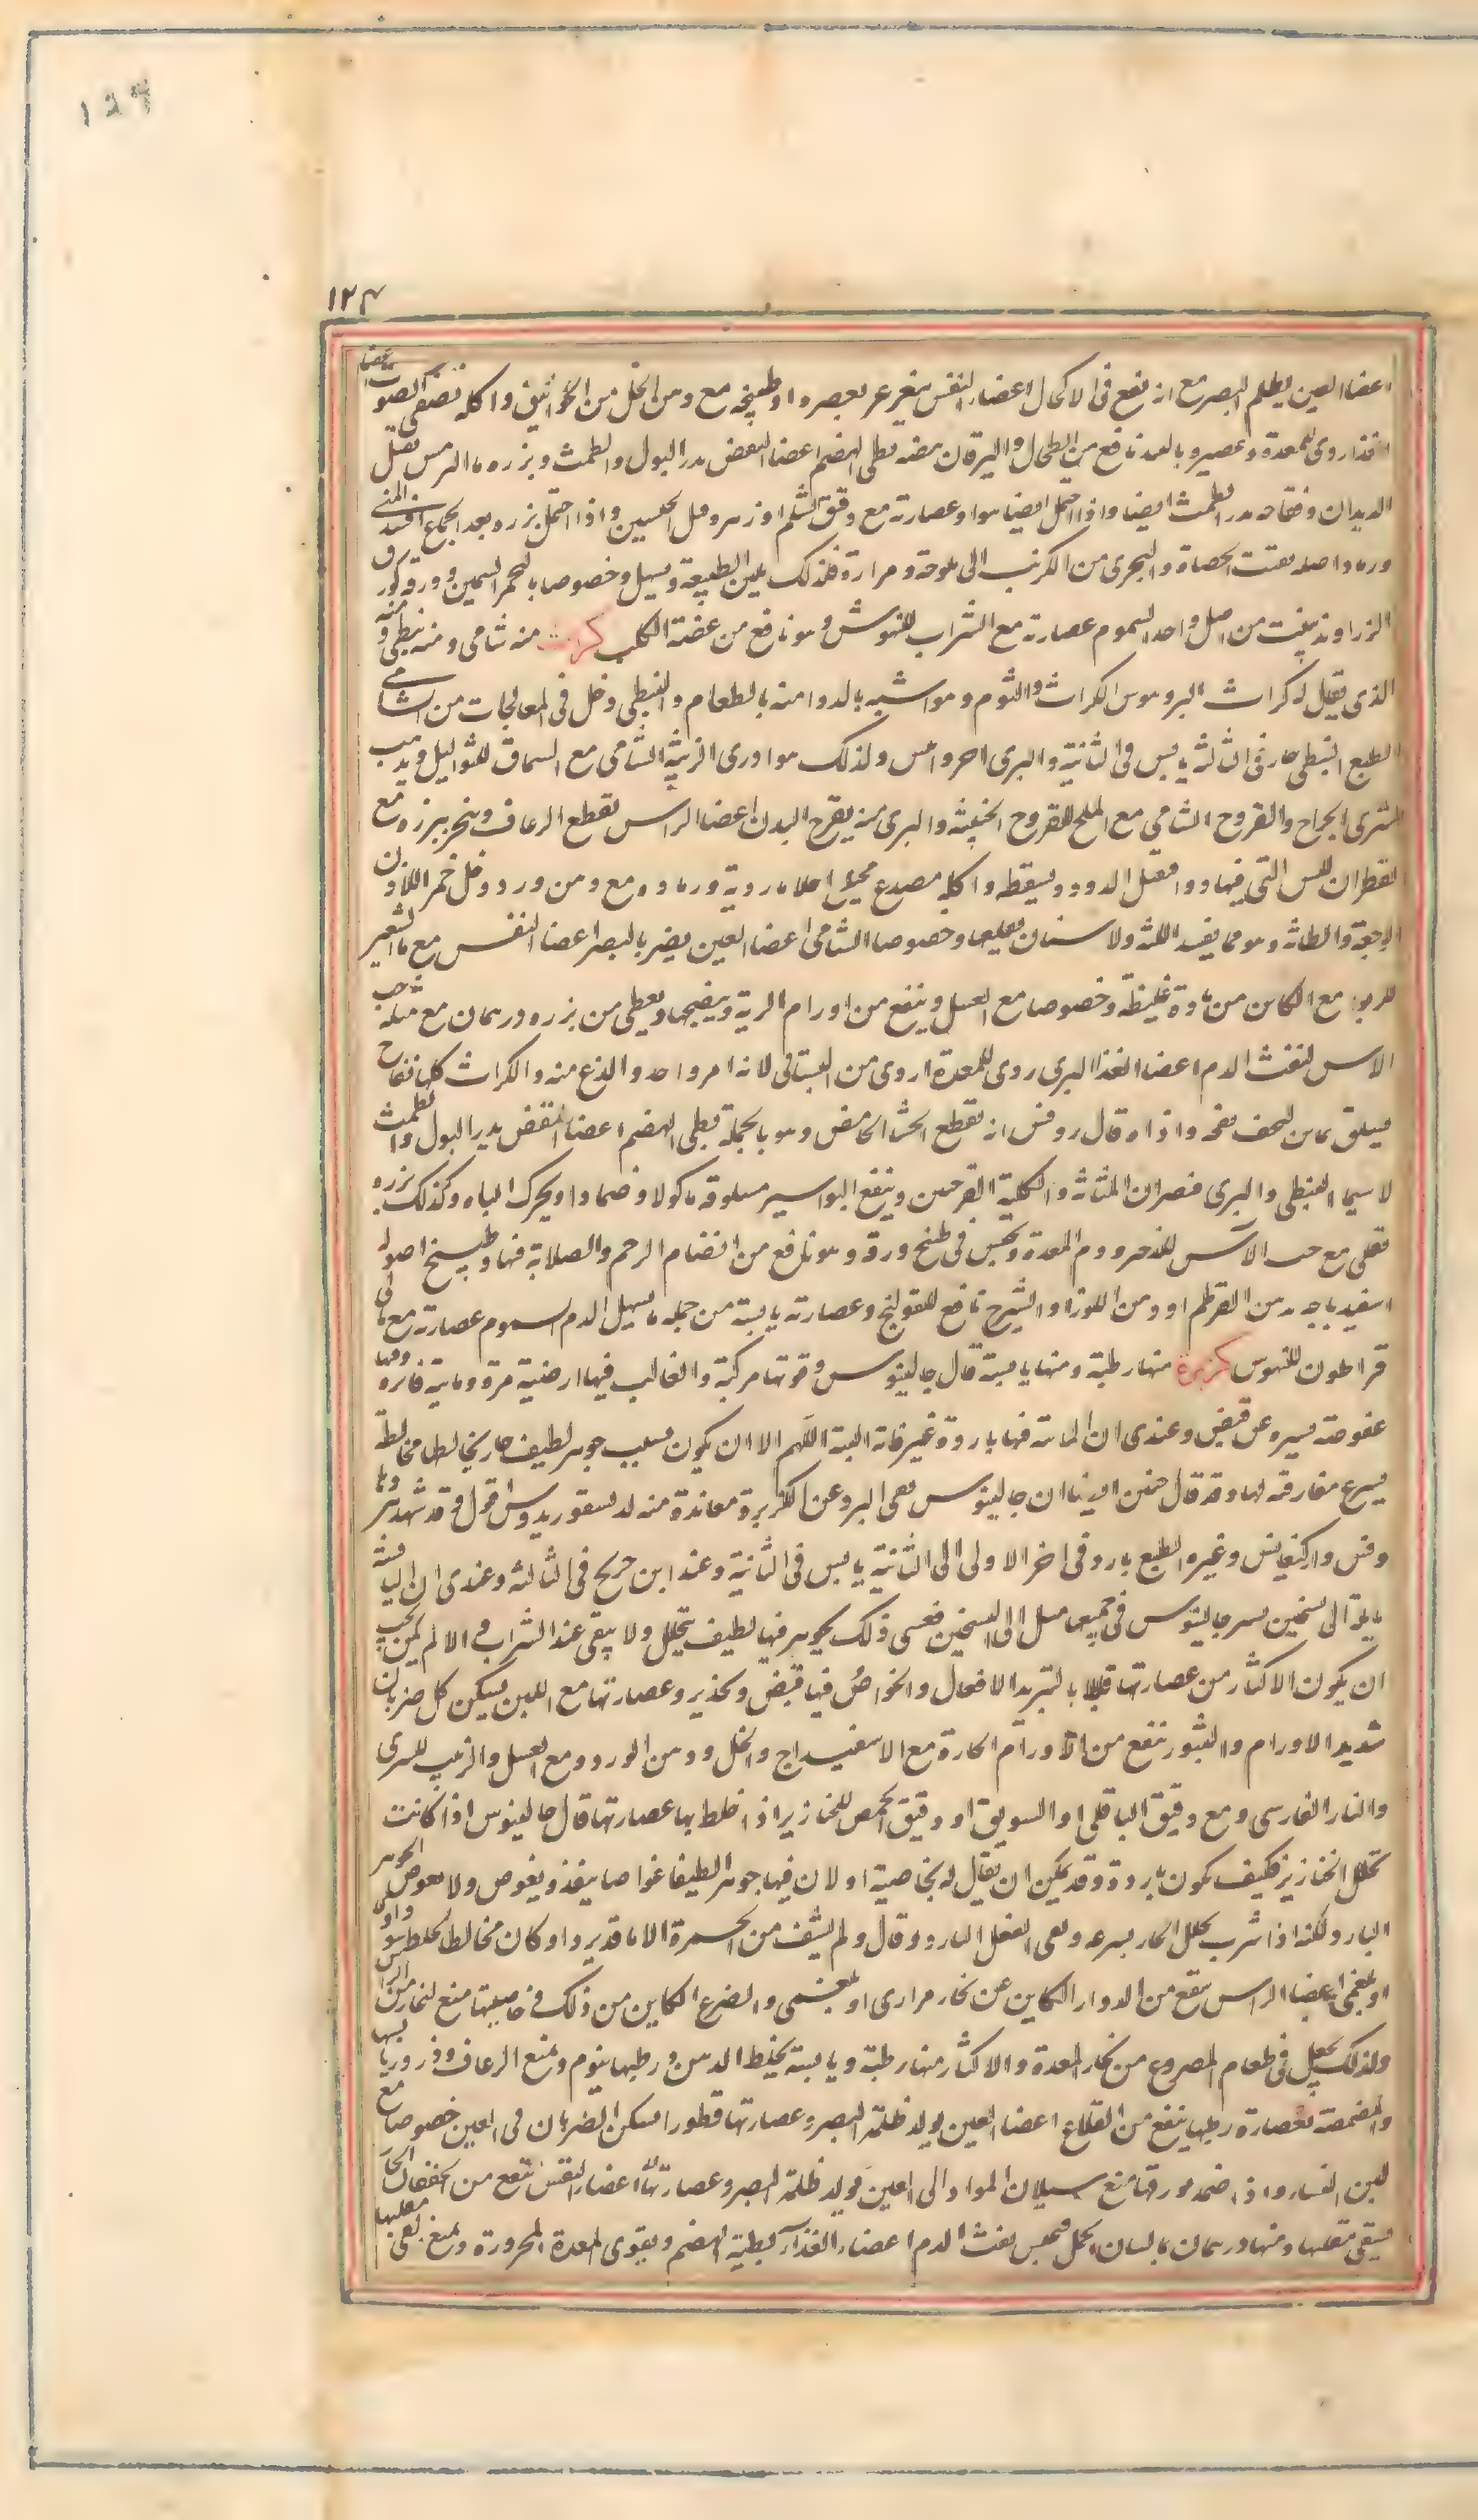 ١٢٩
١٢٣
اعضا العين يظلم البصر مع انه يقع في الاكحال اعضاء النفس يغرغر بعصيره او طبيخه مع دهن الخل من الخوانيق واكله يصفى الصوت اعضا
الغذا ردى للمعدة وعصيره بالنبيذ نافع من الطحال واليرقان بيضه بطى الهضم اعضا النفض يدر البول والطمث وبزره بماء الترمس يقتل
الديدان وفقاحه يدر الطمث ايضا واذا احتمل ايضا هو او عصارته مع دقيق الشيلم او زهره قتل الجنين واذا احتمل بزره بعد الجماع افسد المنى
ورماد اصله يفتت الحصاة والبحرى من الكرنب الى ملوحة ومرارة فلذلك يلين الطبيعة ويسهل وخصوصا بالحم السمين وورقه كورق
الزراوند ينبت من اصل واحد السموم عصارته مع الشراب للنهوش وهو نافع من عضة الكلب كراث منه شامى ومنه نبطى ومنه
الذى يقال له كراث البر وهو بين الكراث والثوم وهو اشبه بالدوا منه بالطعام والنبطى دخل في المعالجات من الشامى
الطبع النبطى حار في الثالثة يابس في الثانية والبرى احر وايبس ولذلك هو اردى الزينة الشامى مع السماق للثواليل ويذهب
الشرى الجراح والقروح الشامى مع الملح للقروح الخبيثة والبرى منه يقرح البدن اعضا الراس يقطع الرعاف ويبخر ببزره مع
القطران للسن التى فيها دود فيقتل الدود ويسقطه واكله مصدع مخيل احلاما ردية ورماده مع دهن ورد وخل خمر للاذن
الوجعة والطانة وهو مما يفسد اللثة والاسنان بقلعها وخصوصا الشامى اعضا العين يضر بالبصر اعضا النفس مع ماء الشعير
للربو مع الكاين من مادة غليظة وخصوصا مع العسل وينفع من اورام الرية وينضجها ويعطى من بزره درهمان مع مثله حب
الاس لنفث الدم اعضا الغذا البرى ردى للمعدة اردى من البستانى لانه امر واحد والذع منه والكراث كلها نفاخ
يسلق بماين ليخف نفخه واذاه قال روفس انه يقطع الجشا الحامض وهو بالجملة بطى الهضم اعضا النفض يدر البول والطمث
لا سيما النبطى والبرى فيضران المثانة والكلية القرحتين وينفع البواسير مسلوقه ماكولا وضمادا ويحرك الباه وكذلك بزره
يقلى مع حب الاس للزحير ودم المعدة ويجلس في طبخ ورقه وهو نافع من انضمام الرحم والصلابة فيها وطبيخ اصوله
اسفيدباجه بدهن القرطم او دهن اللوز او الشيرج نافع للقولنج وعصارته يابسة من جملة ما يسهل الدم السموم عصارته مع مالى
قراطون للنهوش كزبرة منها رطبة ومنها يابسة قال جالينوس وقوتها مركبة والغالب فيها ارضية مرة ومائية فاترة وفيها
عفوصة يسيرة عن قبض وعندى ان المائية فيها باردة غير فاترة البتة اللهم الا ان يكون بسبب جوهر لطيف حار يخالطها مخالطة
يسرع مفارقته لها وقد قال حنين ايضا ان جالينوس نفى البرد عن الكزبرة معاندة منه لديسقوريدوس اقول وقد شهد ببردها
روفس واركيغانس وغيره الطبع بارد في اخر الاولى الى الثانية يابس في الثانية وعند ابن جريج في الثالثة وعندى ان اليابسة
مايلة الى تسخين يسير جالينوس في جميعها ميل الى التسخين فعسى ذلك بجوهر فيها لطيف يتحلل ولا يبقى عند الشراب والا لم يكن يجب
ان يكون الاكثار من عصارتها قاتلا بالتبريد الافعال والخواص فيها قبض وتخدير وعصارتها مع اللبن تسكن كل ضربان
شديد الاورام والبثور تنفع من الاورام الحارة مع الاسفيداج والخل ودهن الورد ومع العسل والزبيب للشرى
والنار الفارسى ومع دقيق الباقلى او السويق او دقيق الحمص للخنازير اذ اخلط بها عصارتها قال جالينوس اذا كانت
تحلل الخنازير فكيف تكون باردة وقد يمكن ان يقال له بخاصية او لان فيها جوهرا لطيفا غواصا ينفذ ويغوص ولا يغوص الجوهر
البارد لكنه اذا شرب تحلل الحار بسرعة وبقى الفعل البارد وقال ولم يشف من الحمرة الا ما قد برد او كان مخالطا بخلط سوداوى
او بلغمى اعضا الراس تنفع من الدوار الكاين عن بخار مرارى او بلغمى والصرع الكاين من ذلك فى خاصيتها منع البخار من الراس
ولذلك يجعل فى طعام المصروع من بخار المعدة والاكثار منها رطبة ويابسة يخلط الذهن ورطبها ينوم ويمنع الرعاف وذر ورقها
والمضمضة بعصارة رطبها ينفع من القلاع اعضا العين يولد ظلمة البصر وعصارتها قطورا تسكن الضربان فى العين خصوصا مع
لبن النسا واذا ضمد بورقها منع سيلان المواد الى العين ويولد ظلمة البصر وعصارتها اعضاء النفس تنفع من الخفقان الحار
يسقى منها درهمان بماء لسان الحمل فيحبس نفث الدم اعضاء الغذاء بطية الهضم ويقوى المعدة المحرورة ويمنع القى